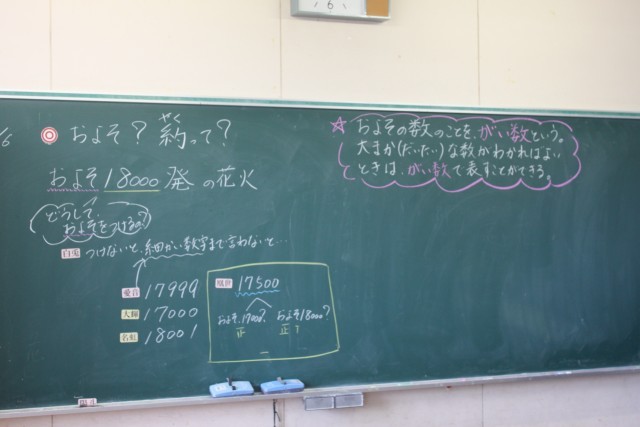 およそ? 約って?
やく
およそ18000発の花火
どうして、
およそをつけるの?
つけないと、細かい数字まで言わないと…
愛音 17999
大輝 17000
18001
17500
およそ17000? およそ18000?
正 正丅
☆ およその数のことを、がい数という。
大まか(だいたい)な数がわかればよい
ときは、がい数で表すことができる。
6